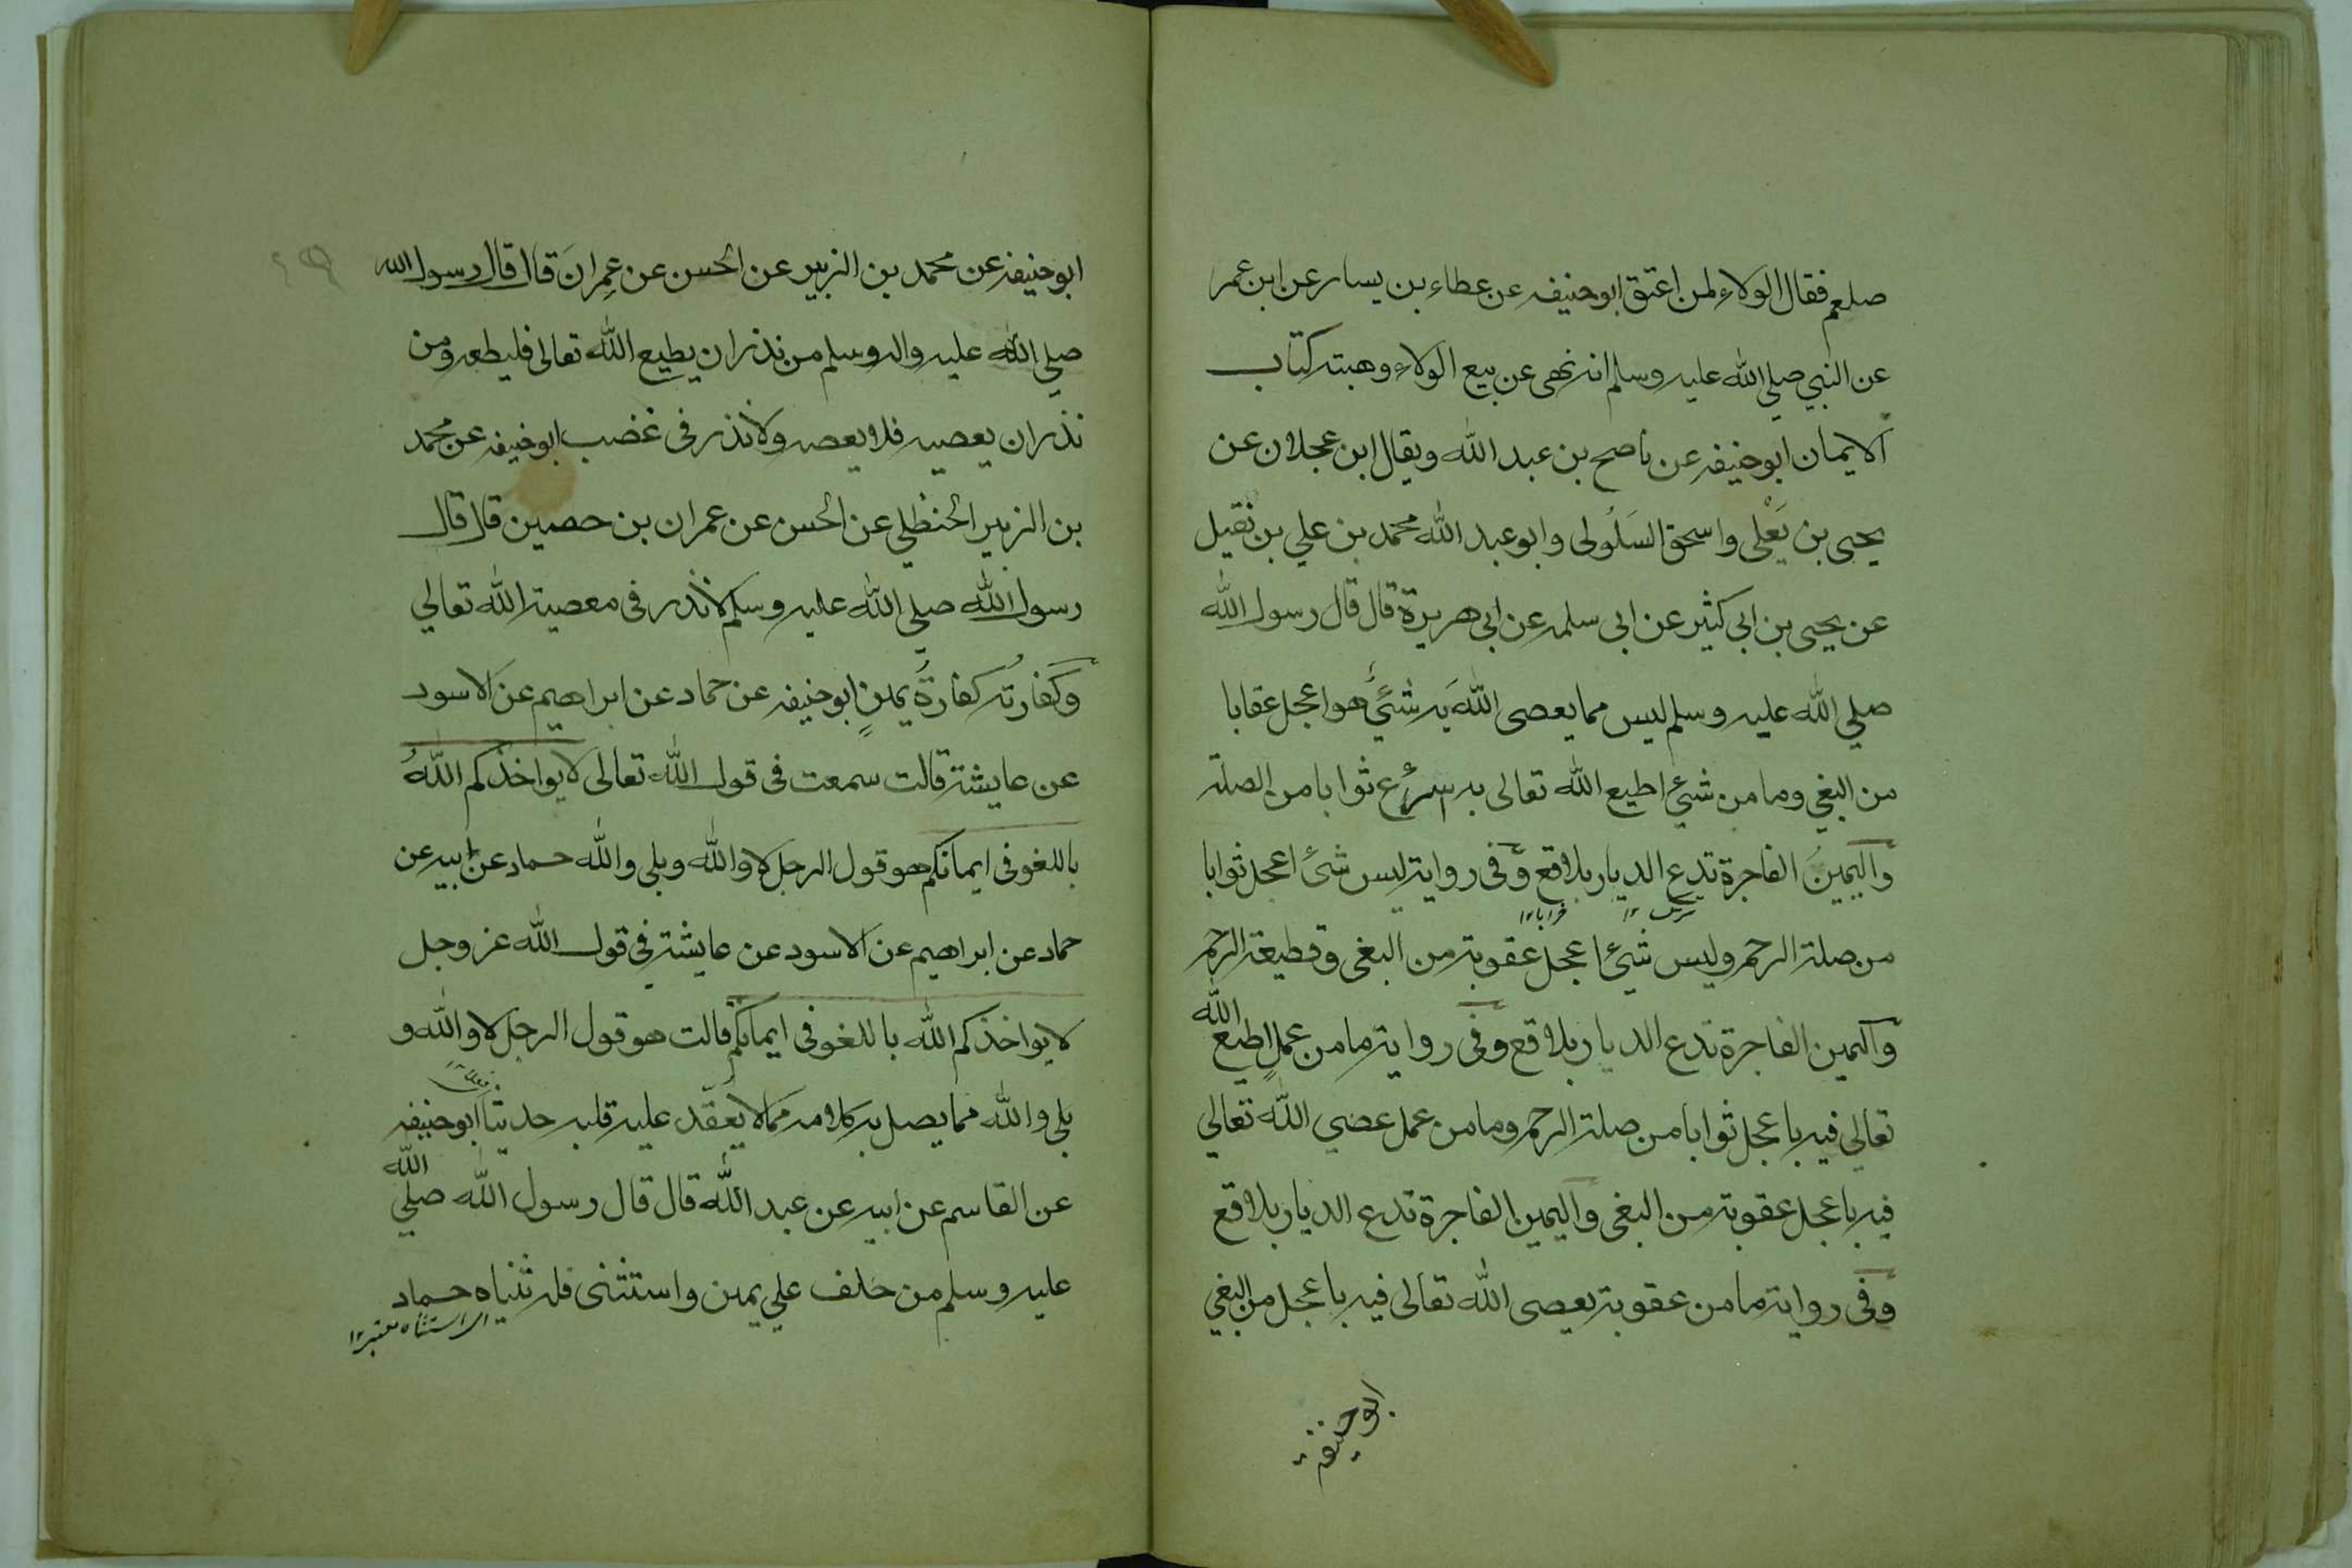 صلعم فقال الولاء لمن اعتق ابوحنيفه عن عطاء بن يسار عن ابن عمر
عن النبي صلي الله عليه وسلم انه نهى عن بيع الولاء وهبته كتاب
الايمان ابوحنيفه عن ناصح بن عبد الله ويقال ابن عجلان عن
يحيى بن يَعْلى واسحق السَلُولى وابو عبد الله محمد بن علي بن نفيل
عن يحيى بن ابى كثير عن ابى سلمه عن ابى هريرة قال قال رسول الله
صلي الله عليه وسلم ليس مما يعصى اللهَ به شئٌ هو اعجل عقابا
من البغي وما من شئ اطيع الله تعالى به اسرع ثوابا من الصلة
واليمينُ الفاجرة تدع الديار بلاقع وفى رواية ليس شئ اعجل ثوابا
خرابا ١٢
من صلة الرحم وليس شئ اعجل عقوبة من البغى وقطيعة الرحم
واليمين الفاجرة تدع الديار بلاقع وفى رواية ما من عملٍ اطيع الله
تعالي فيه باعجل ثوابا من صلة الرحم وما من عمل عضي الله تعالي
فيه باعجل عقوبة من البغى واليمين الفاجرة تدع الديار بلاقع
وفى رواية ما من عقوبة يعصى الله تعالى فيه باعجل من البغي
ابوحنيفة
٤٩
ابوحنيفه عن محمد بن الزبير عن الحسن عن عِمرانَ قال قال رسول الله
صلي الله عليه واله وسلم من نذر ان يطيع الله تعالى فليطعه ومن
نذر ان يعصيه فلا يعصه ولا نذر فى غضب ابوحنيفه عن محمد
بن الزبير الحنظلي عن الحسن عن عمران بن حصين قال قال
رسول الله صلي الله عليه وسلم لا نذر فى معصية الله تعالي
وكفارتُه كفارةُ يمينٍ ابوحنيفه عن حماد عن ابراهيم عن الاسود
عن عايشة قالت سمعت فى قول الله تعالى لا يواخذكم اللهُ
باللغو فى ايمانكم هو قول الرجل لا والله وبلى والله حماد عن ابيه عن
حماد عن ابراهيم عن الاسود عن عايشة فى قول الله عز وجل
لا يواخذكم الله باللغو فى ايمانكم قالت هو قول الرجل لا والله و
بلى والله مما يصل به كلامه مما لا يعقد عليه قلبه حديثا ابوحنيفه
عن القاسم عن ابيه عن عبد الله قال قال رسول الله صلي الله
عليه وسلم من حلف علي يمين واستثنى فله ثنياه حماد
اى استثناه معتبر ١٢